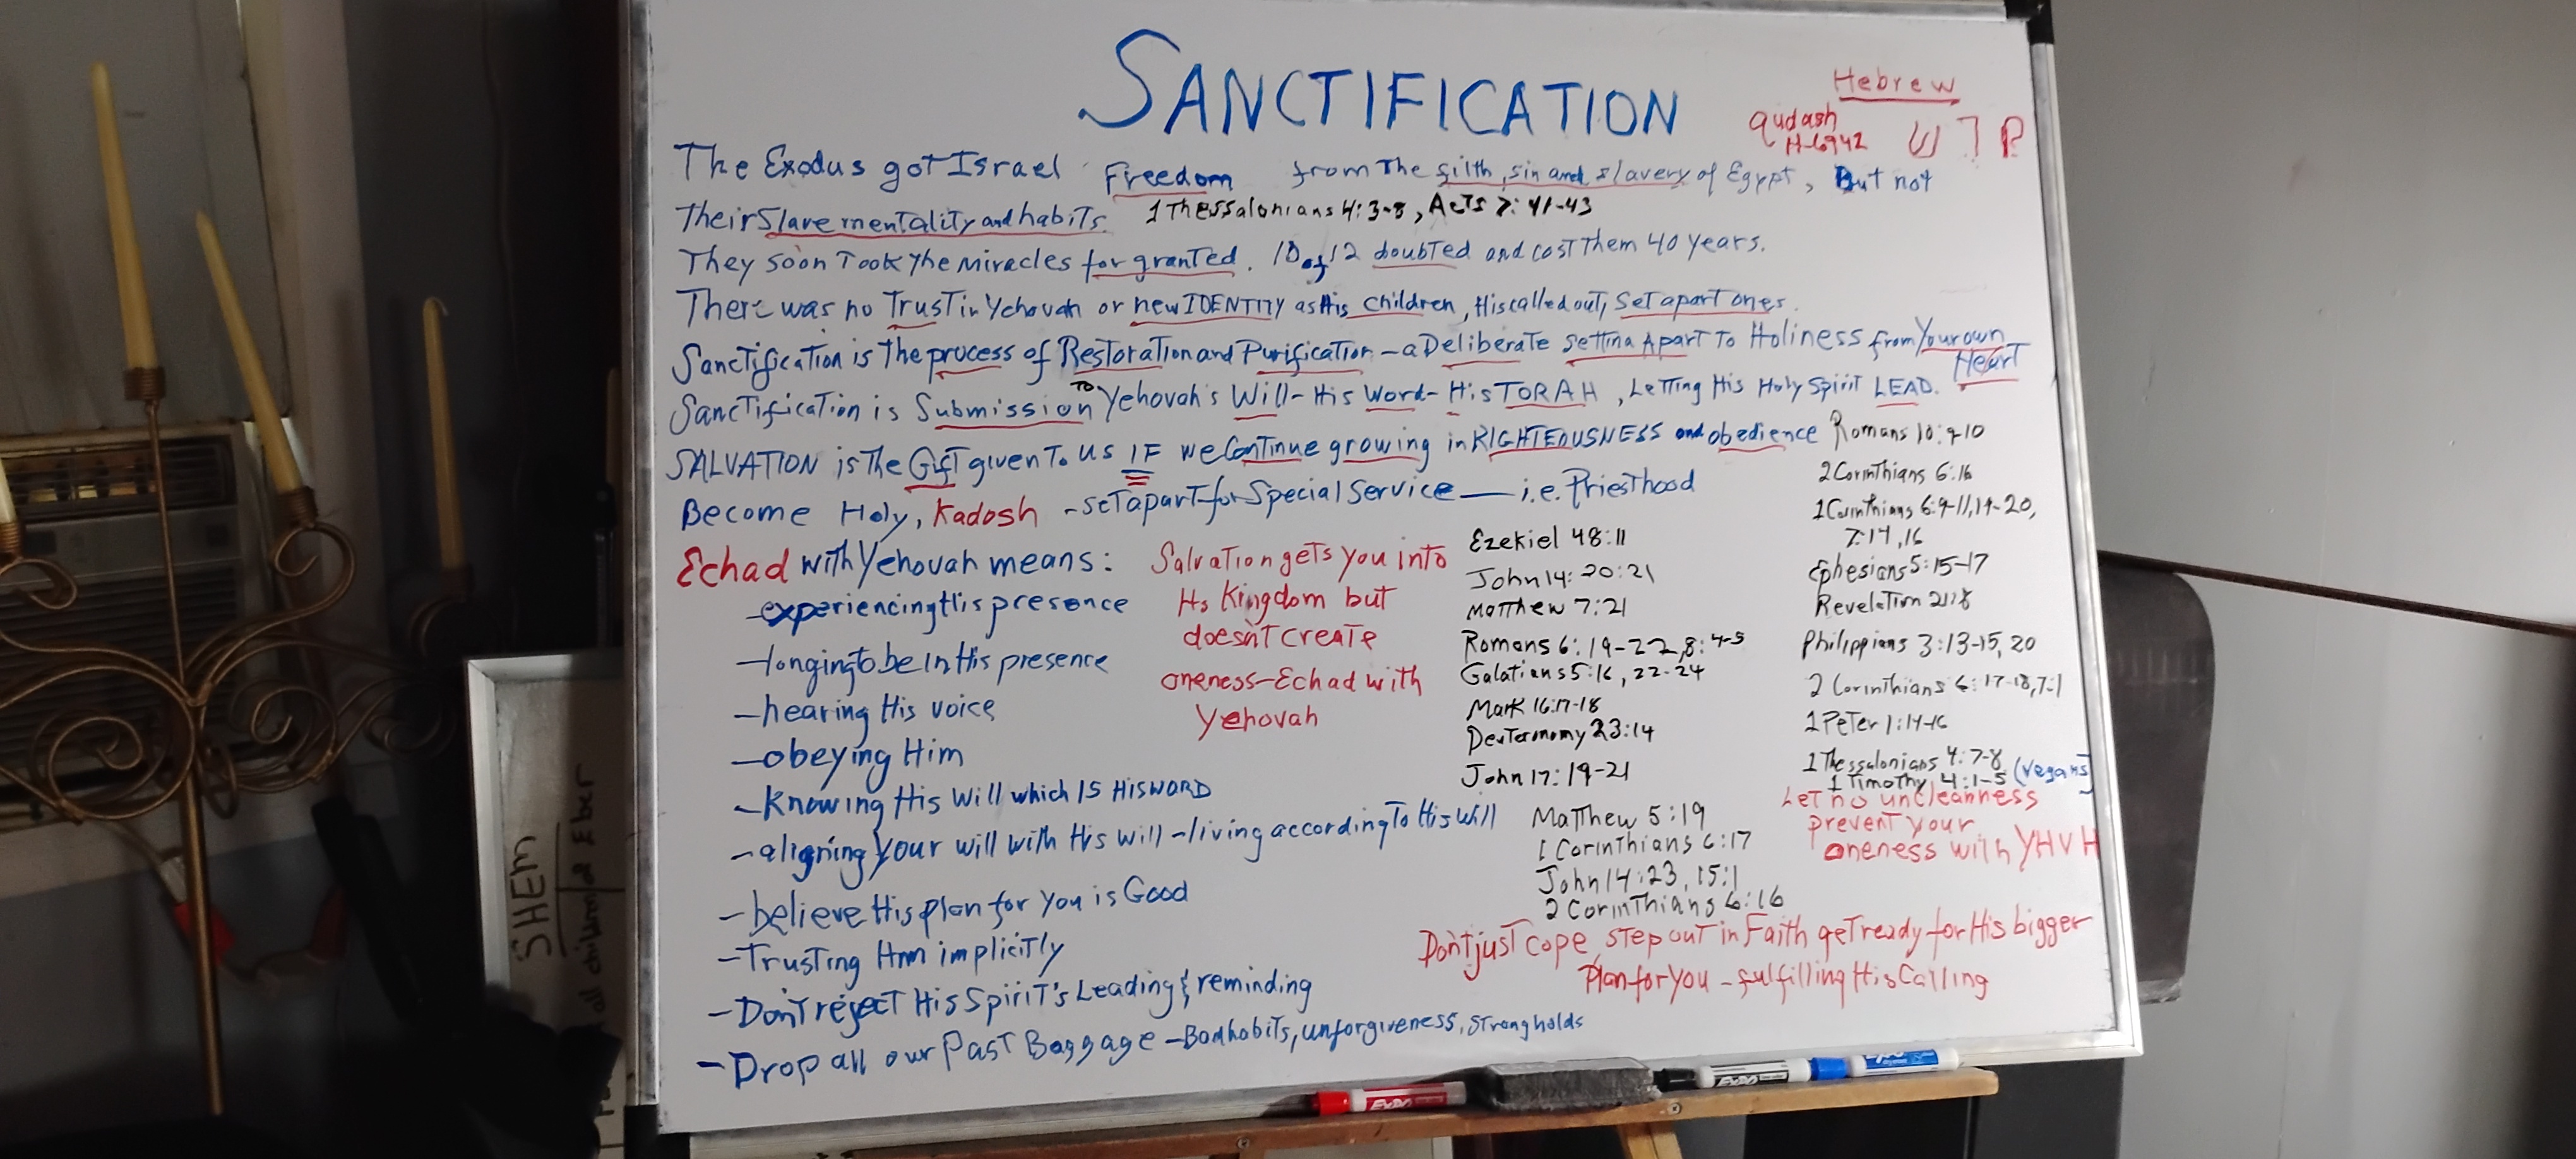 SANCTIFICATION
Hebrew
qudash
H-6942
קדש
The Exodus got Israel Freedom from The filth, sin and slavery of Egypt, But not
Their Slave mentality and habits. 1 Thessalonians 4:3-8, Acts 7:41-43
They soon Took the Miracles for granted. 10 of 12 doubted and cost Them 40 years.
There was no Trust in Yehovah or new IDENTITY as His Children, His called out, Set apart ones.
Sanctification is The process of Restoration and Purification - a Deliberate setting Apart To Holiness from Your own Heart
Sanctification is Submission To Yehovah's Will - His Word - His TORAH, Letting His Holy Spirit LEAD.
SALVATION is The Gift given To us IF we Continue growing in RIGHTEOUSNESS and obedience Romans 10:9-10
Become Holy, Kadosh - set apart for Special Service — i.e. Priesthood
Echad with Yehovah means:
- experiencing His presence
- longing to be in His presence
- hearing His voice
- obeying Him
- Knowing His Will which IS HIS WORD
- aligning Your will with His Will - living according To His Will
- believe His plan for You is Good
- Trusting Him implicitly
- Don't reject His Spirit's Leading & reminding
- Drop all our Past Baggage - Bad habits, unforgiveness, strongholds
Salvation gets you into
His Kingdom but
doesn't create
oneness - Echad with
Yehovah
Ezekiel 48:11
John 14:20:21
Matthew 7:21
Romans 6:19-22, 8:4-5
Galatians 5:16, 22-24
Mark 16:17-18
Deuteronomy 23:14
John 17:19-21
Matthew 5:19
1 Corinthians 6:17
John 14:23, 15:1
2 Corinthians 6:16
2 Corinthians 6:16
1 Corinthians 6:9-11, 19-20,
7:14, 16
Ephesians 5:15-17
Revelation 21:8
Philippians 3:13-15, 20
2 Corinthians 6:17-18, 7:1
1 Peter 1:14-16
1 Thessalonians 4:7-8
1 Timothy 4:1-5 (vegans)
Let no uncleanness
prevent your
oneness with YHVH
Don't just cope, step out in Faith get ready for His bigger
Plan for You - fulfilling His Calling
SHEM
all children of Eber
EXPO
EXPO
EXPO